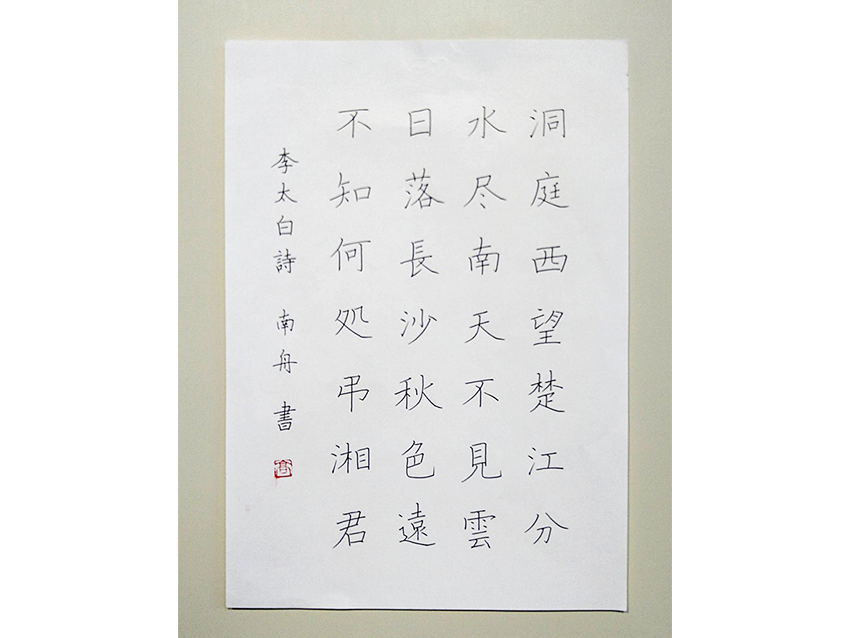 洞庭西望楚江分
水尽南天不見雲
日落長沙秋色遠
不知何処弔湘君
李太白詩 南舟 書